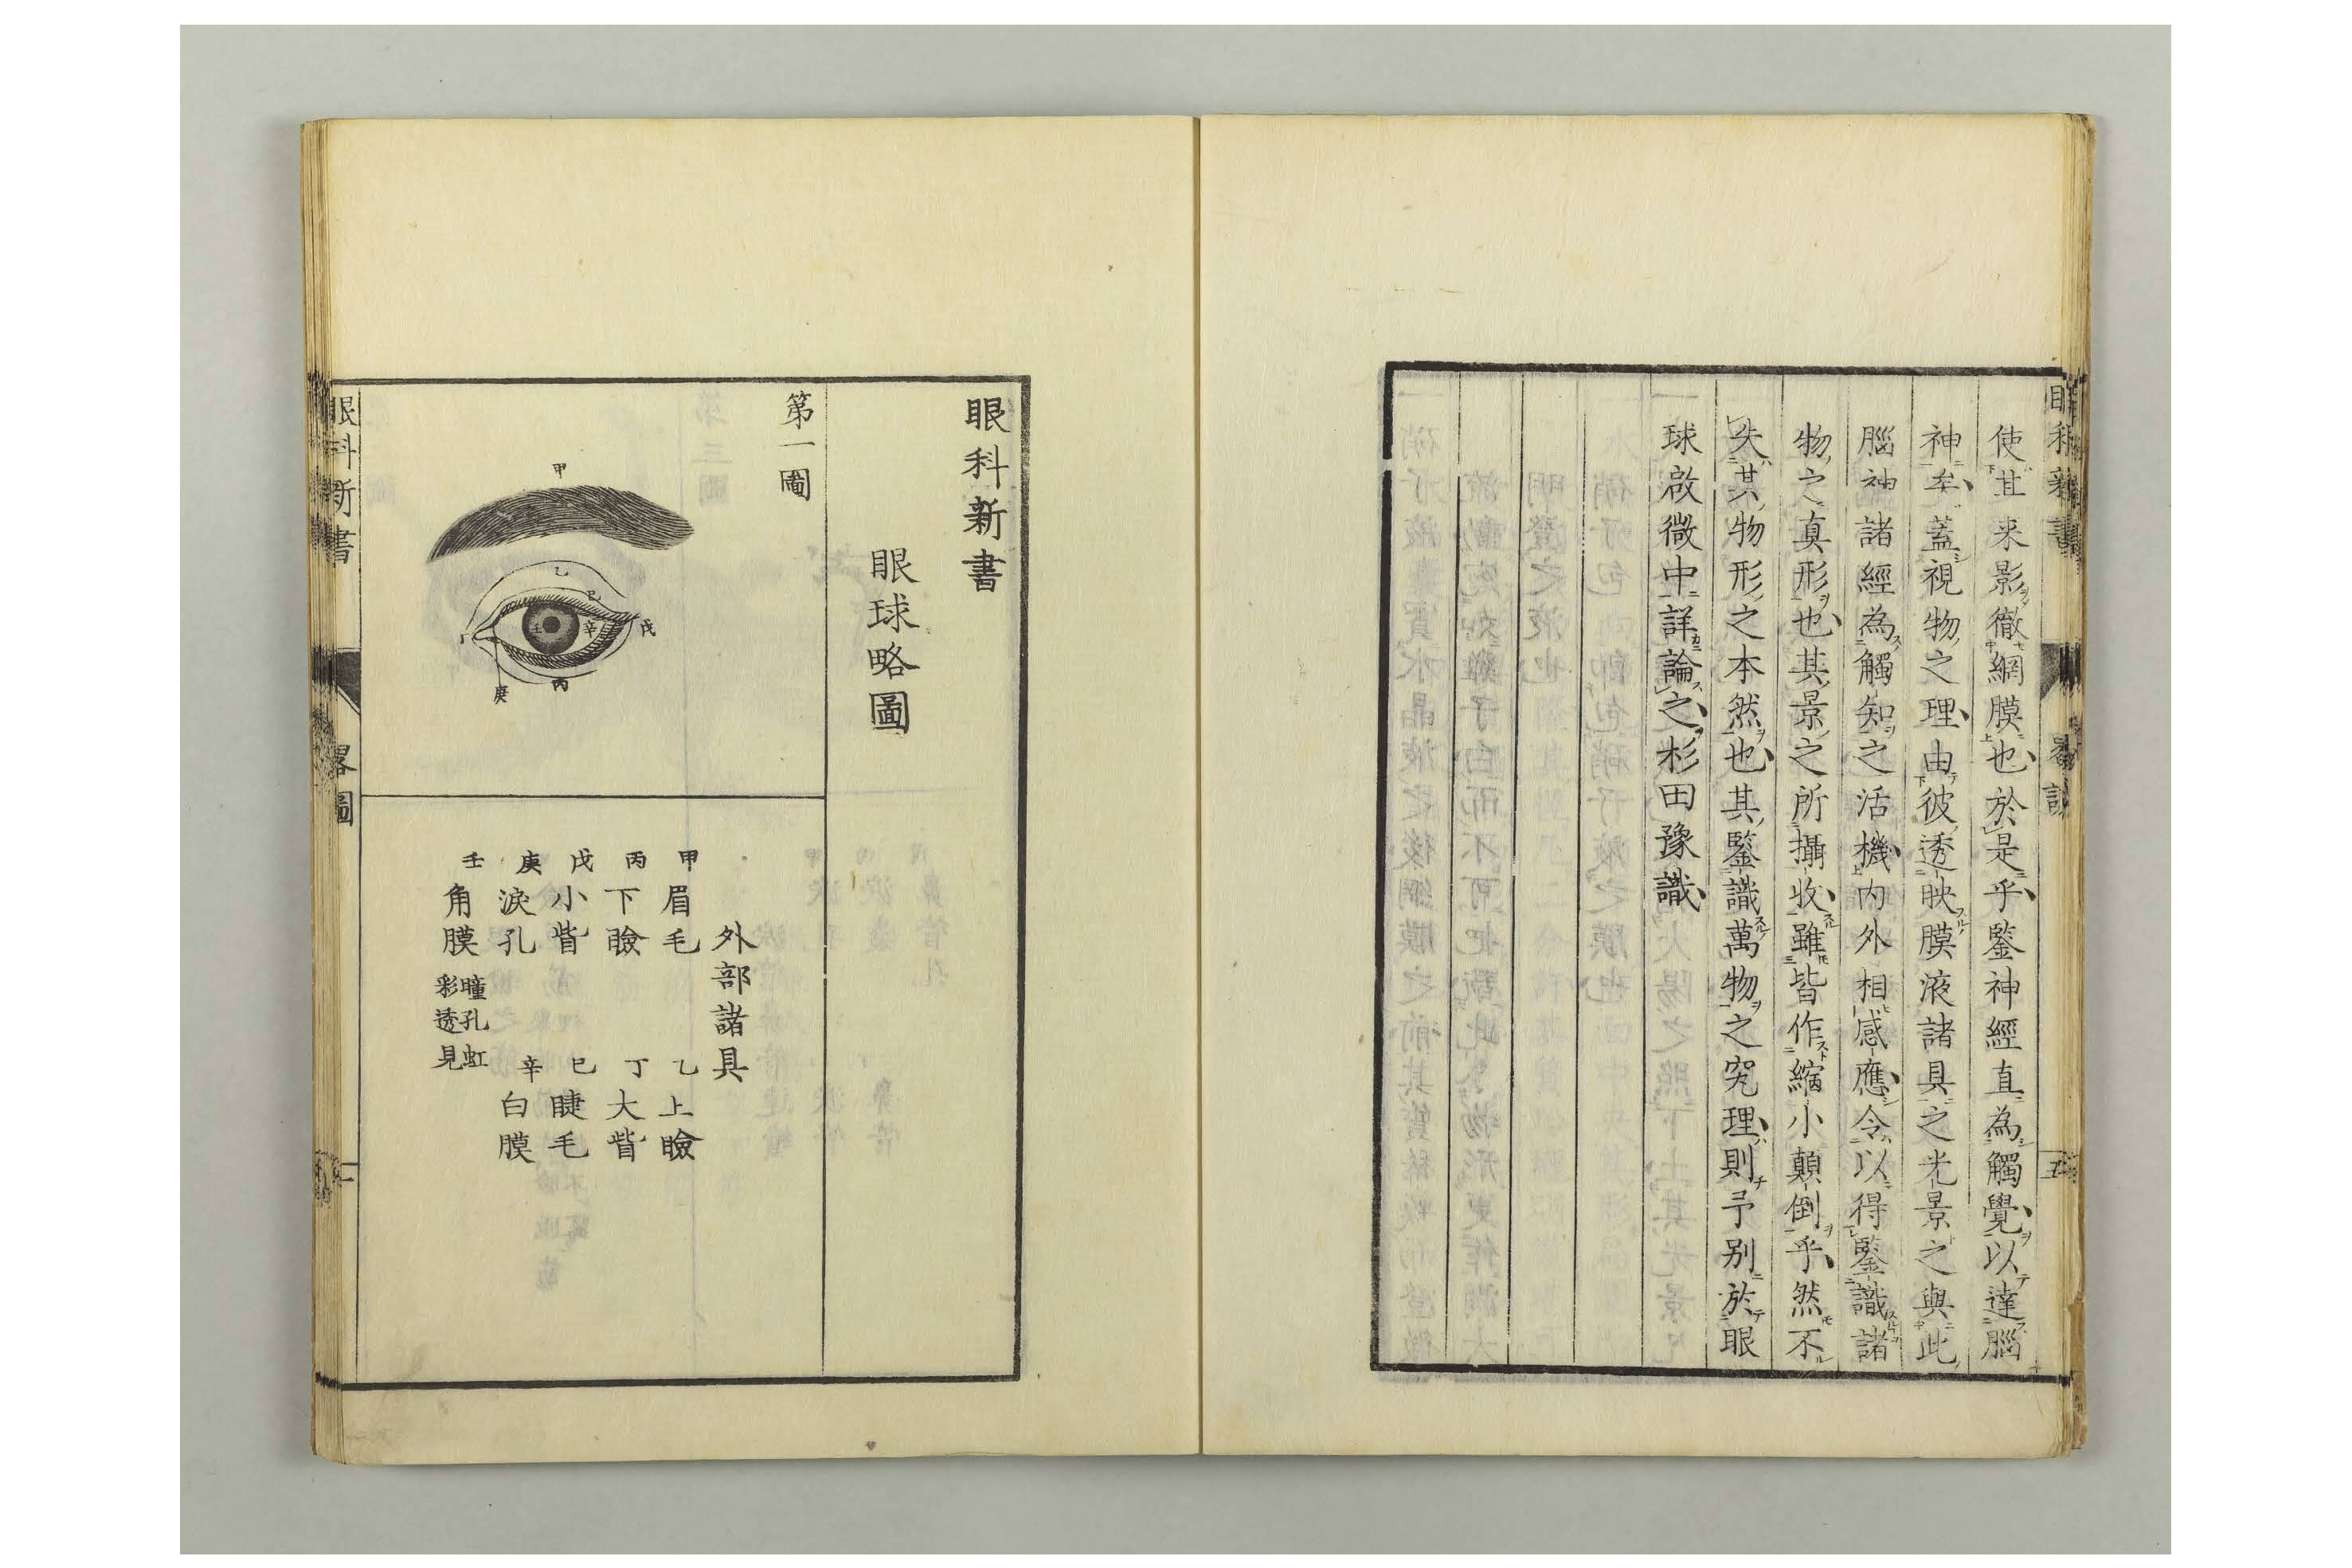 使其来影徹網膜也於是乎鑒神經直為觸覺以達腦
神矣蓋視物之理由彼透映膜液諸具之光景之與此
腦神諸經為觸知之活機内外相感應令以得鑒識諸
物之真形也其景之所攝收雖皆作縮小顛倒乎然不
失其物形之本然也其鑒識萬物之究理則予別於眼
球啟微中詳論之杉田豫識
眼科新書
眼球略圖
第一圖
甲
乙
巳
戊
辛
壬
丁
丙
庚
外部諸具
甲 眉毛 乙 上瞼
丙 下瞼 丁 大眥
戊 小眥 巳 睫毛
庚 淚孔 辛 白膜
壬 角膜 瞳孔虹彩透見
眼科新書 畧圖